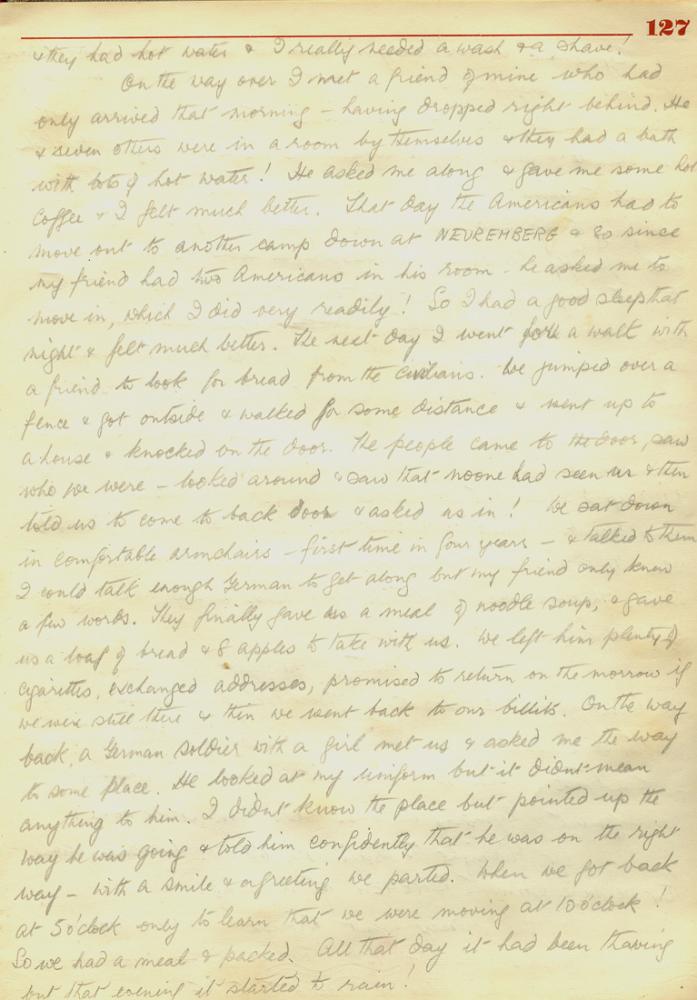 127
& they had hot water & I really needed a wash & a shave!
On the way over I met a friend of mine who had
only arrived that morning - having dropped right behind. He
& seven others were in a room by themselves & they had a bath
with lots of hot water! He asked me along & gave me some hot
coffee & I felt much better. That day the Americans had to
move out to another camp down at NEUREMBERG & so since
my friend had two Americans in his room - he asked me to
move in, which I did very readily! So I had a good sleep that
night & felt much better. The next day I went for a walk with
a friend to look for bread from the civilians. We jumped over a
fence & got outside & walked for some distance & went up to
a house & knocked on the door. The people came to the door, saw
who we were - looked around & saw that noone had seen us & then
told us to come to back door & asked us in! We sat down
in comfortable armchairs - first time in four years - & talked to them
I could talk enough German to get along but my friend only knew
a few words. They finally gave us a meal of noodle soup, & gave
us a loaf of bread & 8 apples to take with us. We left him plenty of
cigarettes, exchanged addresses, promised to return on the morrow if
we were still there & then we went back to our billits. On the way
back a German soldier with a girl met us & asked me the way
to some place. He looked at my uniform but it didnt mean
anything to him. I didnt know the place but pointed up the
way he was going & told him confidently that he was on the right
way - with a smile & a greeting we parted. When we got back
at 5 o'clock only to learn that we were moving at 10 o'clock!
So we had a meal & packed. All that day it had been thawing
but that evening it started to rain!